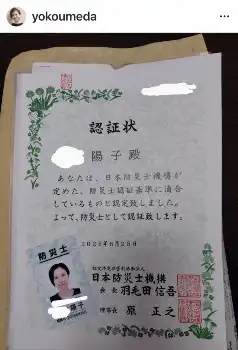 yokoumeda
認証状
陽子殿
あなたは、日本防災士機構が
定めた、防災士認証基準に適合
しているものと認定致しました。
よって、防災士として認証致します。
特定非営利活動法人
日本防災士機構
会長 羽毛田信吾
理事長 原 正之
防災士
陽子